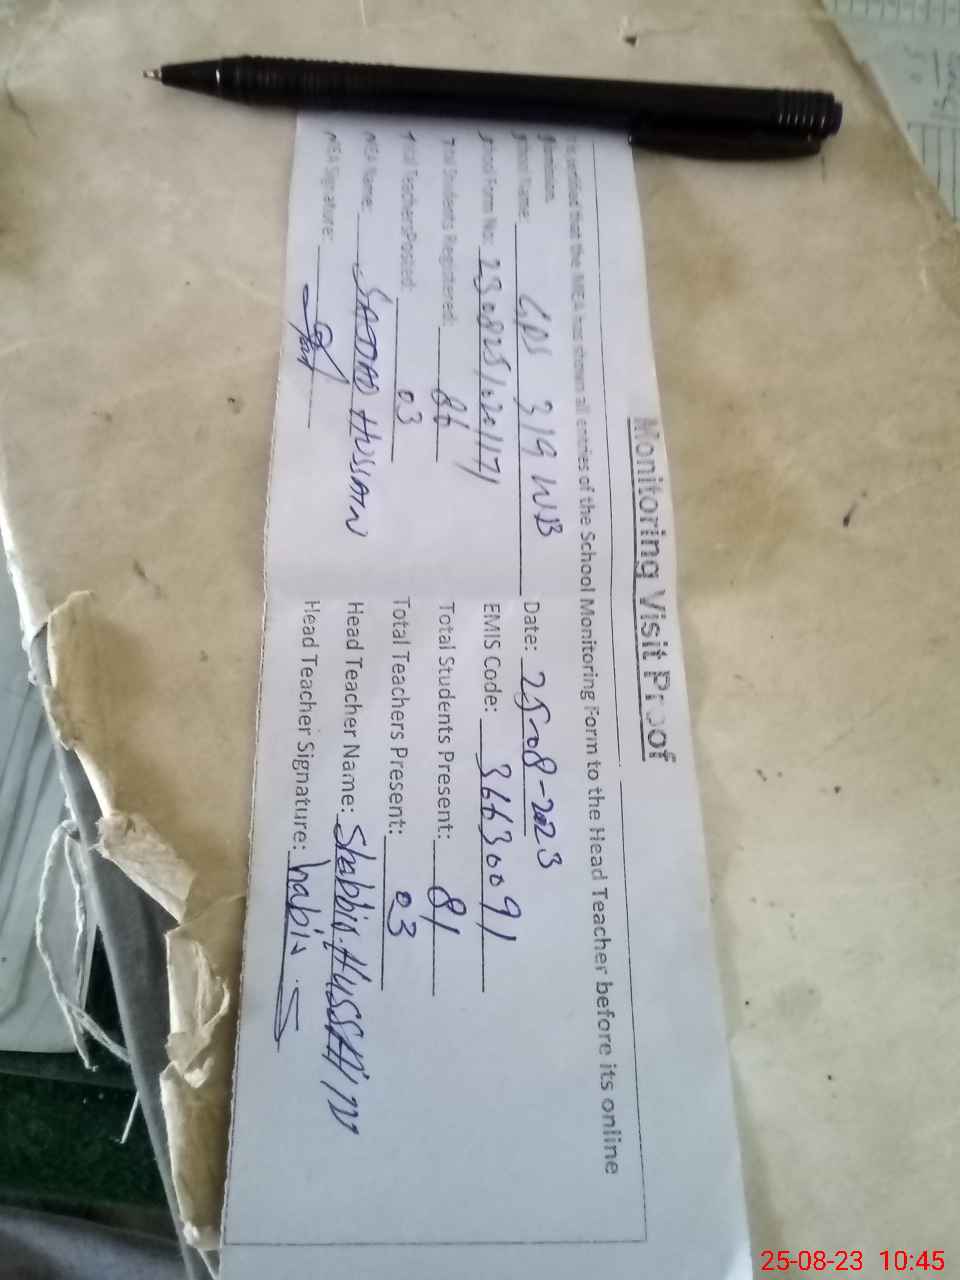 Monitoring Visit Proof
It is certified that the MEA has shown all entries of the School Monitoring Form to the Head Teacher before its online
School Name: GPS 319 WB Date: 25-08-2023
School Form No: 230825/020/171 EMIS Code: 36630091
Total Students Registered: 86 Total Students Present: 81
Total Teachers Posted: 03 Total Teachers Present: 03
MEA Name: SAJJAD HUSSAIN Head Teacher Name: Shabbir HUSSAIN
MEA Signature: Head Teacher Signature:
25-08-23 10:45